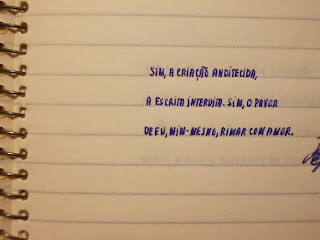 SIM, A CRIAÇÃO ANOITECIDA,
A ESCRITA INTERDITA. SIM, O PAVOR
DE EU, MIM-MESMO, RIMAR COM AMOR.